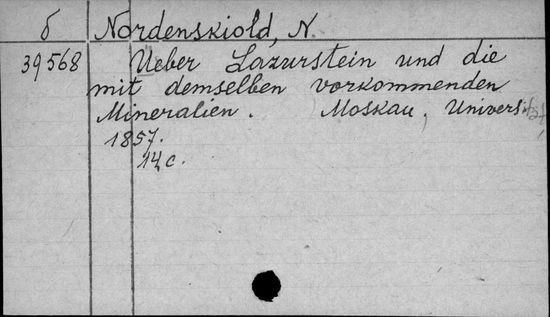 б Nordenskiold, N.
39568 Ueber Lazurstein und die
mit demselben vorkommenden
Mineralien. Moskau, Universität,
1857.
14 c.